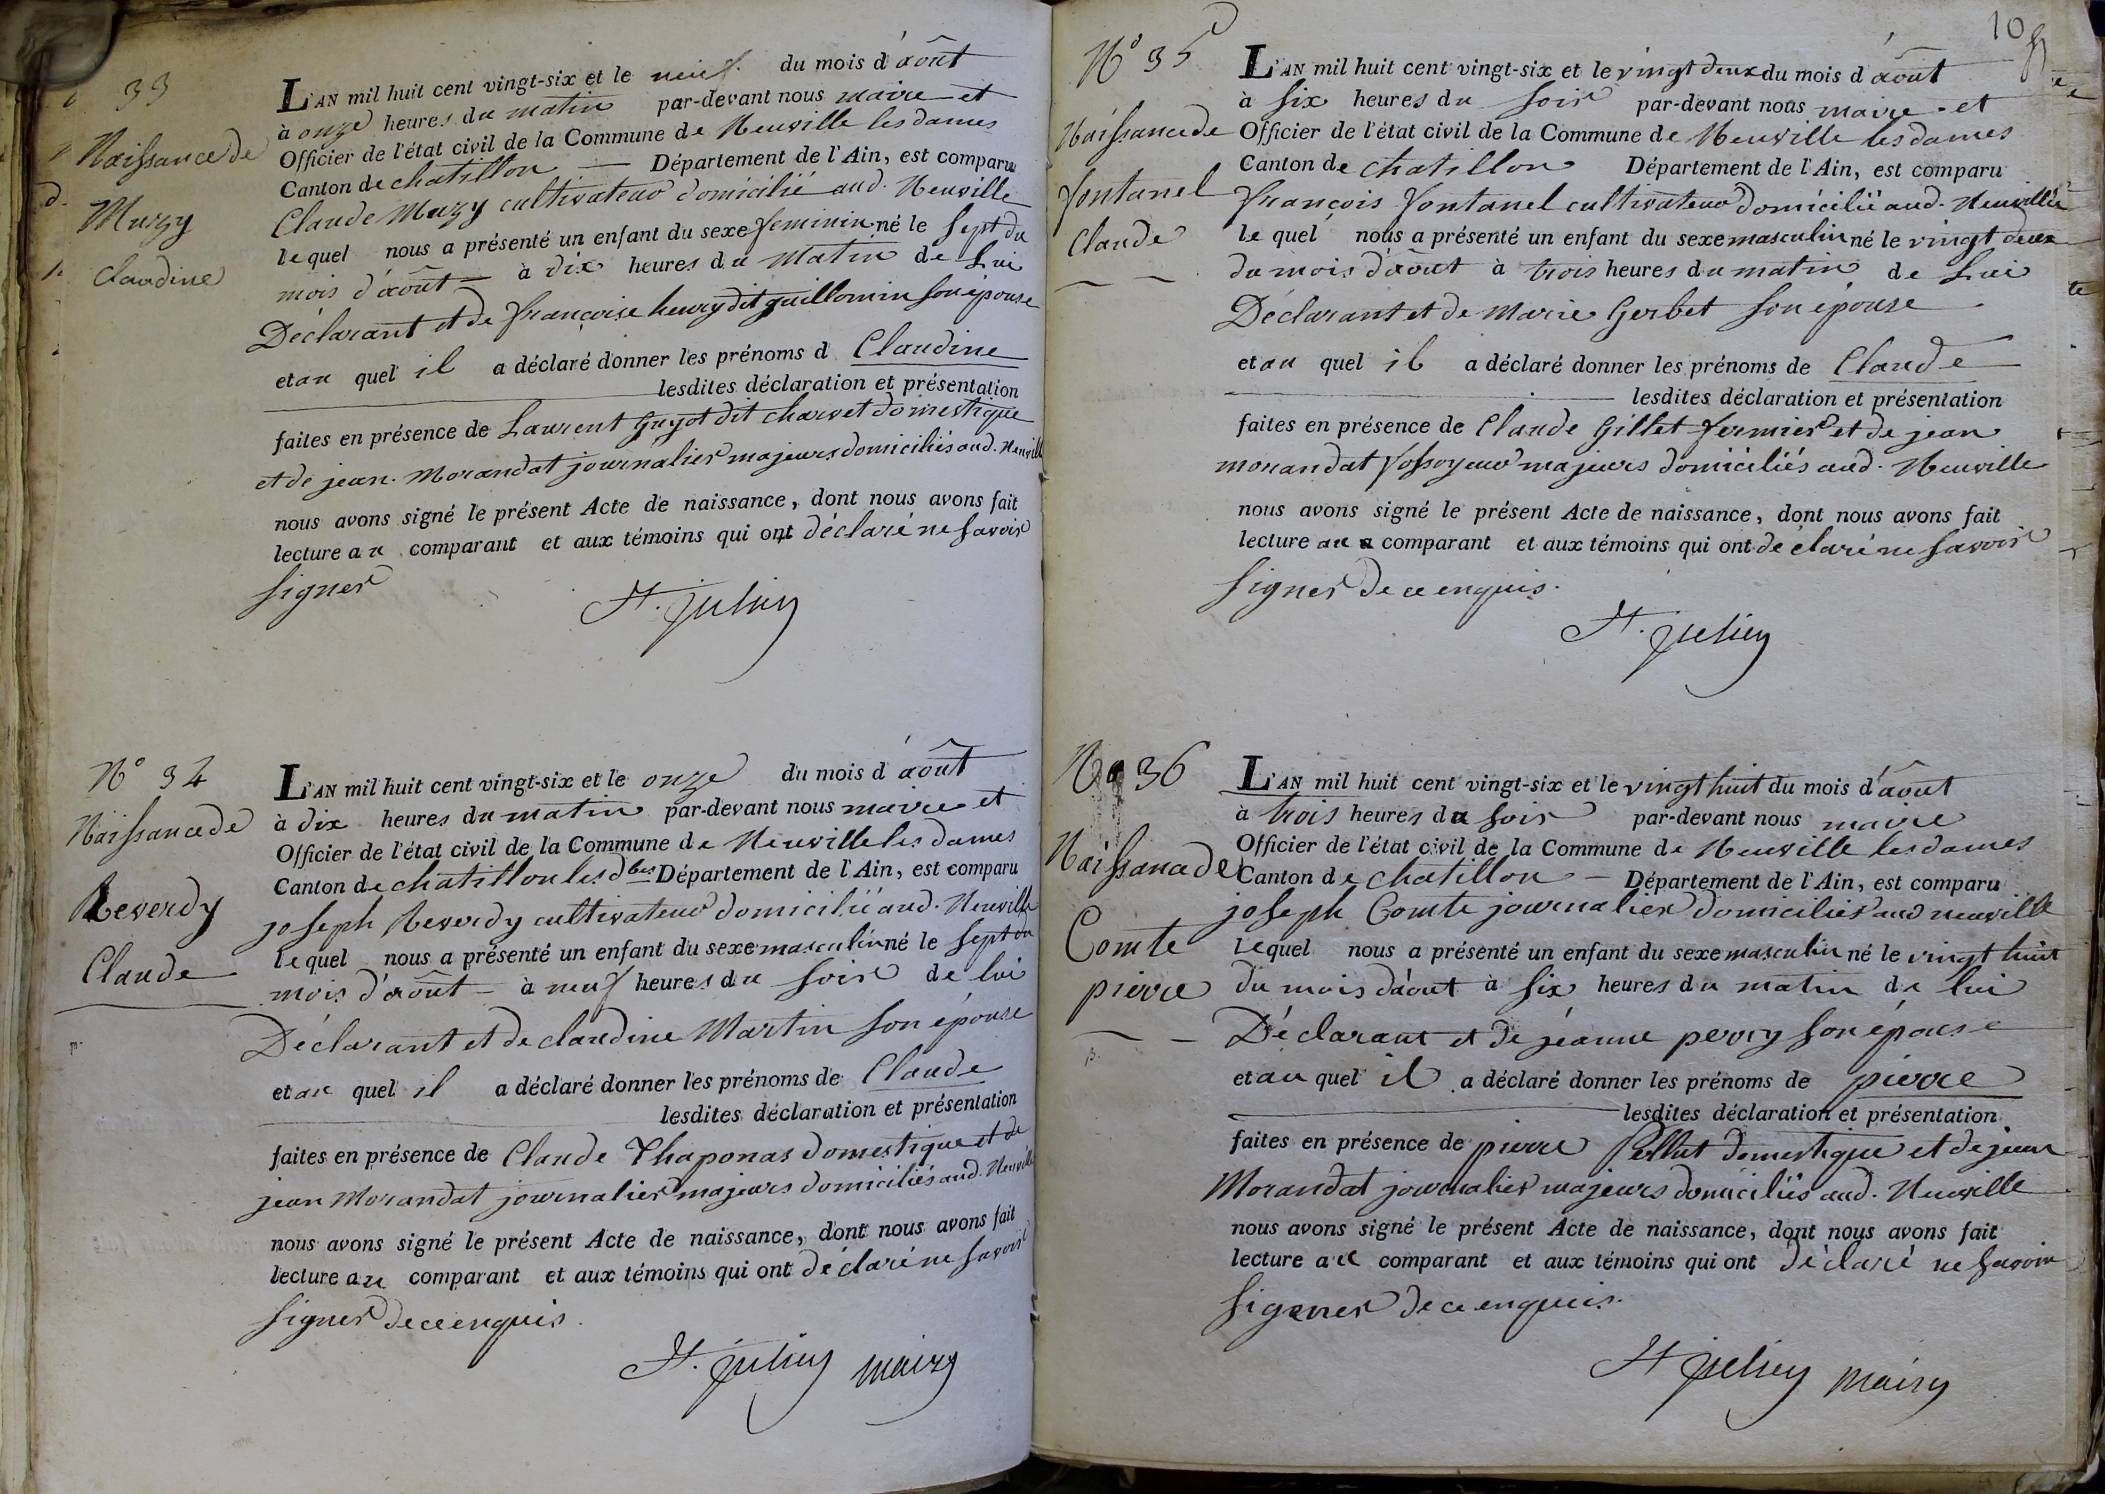 33
Naissance de
Muzy
Claudine
L'AN mil huit cent vingt-six et le neuf du mois d'août
à onze heures du matin par-devant nous maire et
Officier de l'état civil de la Commune de Neuville les dames
Canton de chatillon Département de l'Ain, est comparu
Claude Muzy cultivateur domicilié aud. Neuville
lequel nous a présenté un enfant du sexe feminin né le sept du
mois d'août à dix heures du matin de Lui
Déclarant et de françoise henry dit guillomin son épouse
et au quel il a déclaré donner les prénoms d Claudine
lesdites déclaration et présentation
faites en présence de Laurent Guyot dit charvet domestique
et de jean. Morandat journalier majeurs domiciliés aud. Neuville
nous avons signé le présent Acte de naissance, dont nous avons fait
lecture au comparant et aux témoins qui ont déclaré ne savoir
signer
St. julien
N° 34
Naissance de
Reverdy
Claude
L'AN mil huit cent vingt-six et le onze du mois d'août
à dix heures du matin par-devant nous maire et
Officier de l'état civil de la Commune de Neuville les dames
Canton de chatillon les dbes Département de l'Ain, est comparu
joseph Reverdy cultivateur domicilié aud. Neuville
lequel nous a présenté un enfant du sexe masculin né le sept du
mois d'août à neuf heures du soir de lui
Déclarant et de claudine Martin son épouse
et au quel il a déclaré donner les prénoms de Claude
lesdites déclaration et présentation
faites en présence de Claude Thaponas domestique et de
jean Morandat journalier majeurs domiciliés aud. Neuville
nous avons signé le présent Acte de naissance, dont nous avons fait
lecture au comparant et aux témoins qui ont déclaré ne savoir
signer de ce enquis.
St. julien maire
10
N° 35
Naissance de
fontanel
Claude
L'AN mil huit cent vingt-six et le vingt deux du mois d'août
à six heures du soir par-devant nous maire et
Officier de l'état civil de la Commune de Neuville les dames
Canton de chatillon Département de l'Ain, est comparu
françois fontanel cultivateur domicilié aud. Neuville
lequel nous a présenté un enfant du sexe masculin né le vingt deux
du mois d'août à trois heures du matin de Lui
Déclarant et de Marie Gerbet son épouse
et au quel il a déclaré donner les prénoms de Claude
lesdites déclaration et présentation
faites en présence de Claude Gillet fermier et de jean
morandat fossoyeur majeurs domiciliés aud. Neuville
nous avons signé le présent Acte de naissance, dont nous avons fait
lecture au comparant et aux témoins qui ont déclaré ne savoir
signer de ce enquis.
St. julien
No 36
Naissance de
Comte
pierre
L'AN mil huit cent vingt-six et le vingt huit du mois d'août
à trois heures du soir par-devant nous maire
Officier de l'état civil de la Commune de Neuville les dames
Canton de chatillon Département de l'Ain, est comparu
joseph Comte journalier domicilies aud neuville
lequel nous a présenté un enfant du sexe masculin né le vingt huit
du mois d'août à six heures du matin de lui
Déclarant et de jeanne perry son épouse
et au quel il a déclaré donner les prénoms de pierre
lesdites déclaration et présentation
faites en présence de pierre domestique et de jean
Morandat journalier majeurs domiciliés aud. Neuville
nous avons signé le présent Acte de naissance, dont nous avons fait
lecture au comparant et aux témoins qui ont déclaré ne savoir
signer de ce enquis.
St julien maire